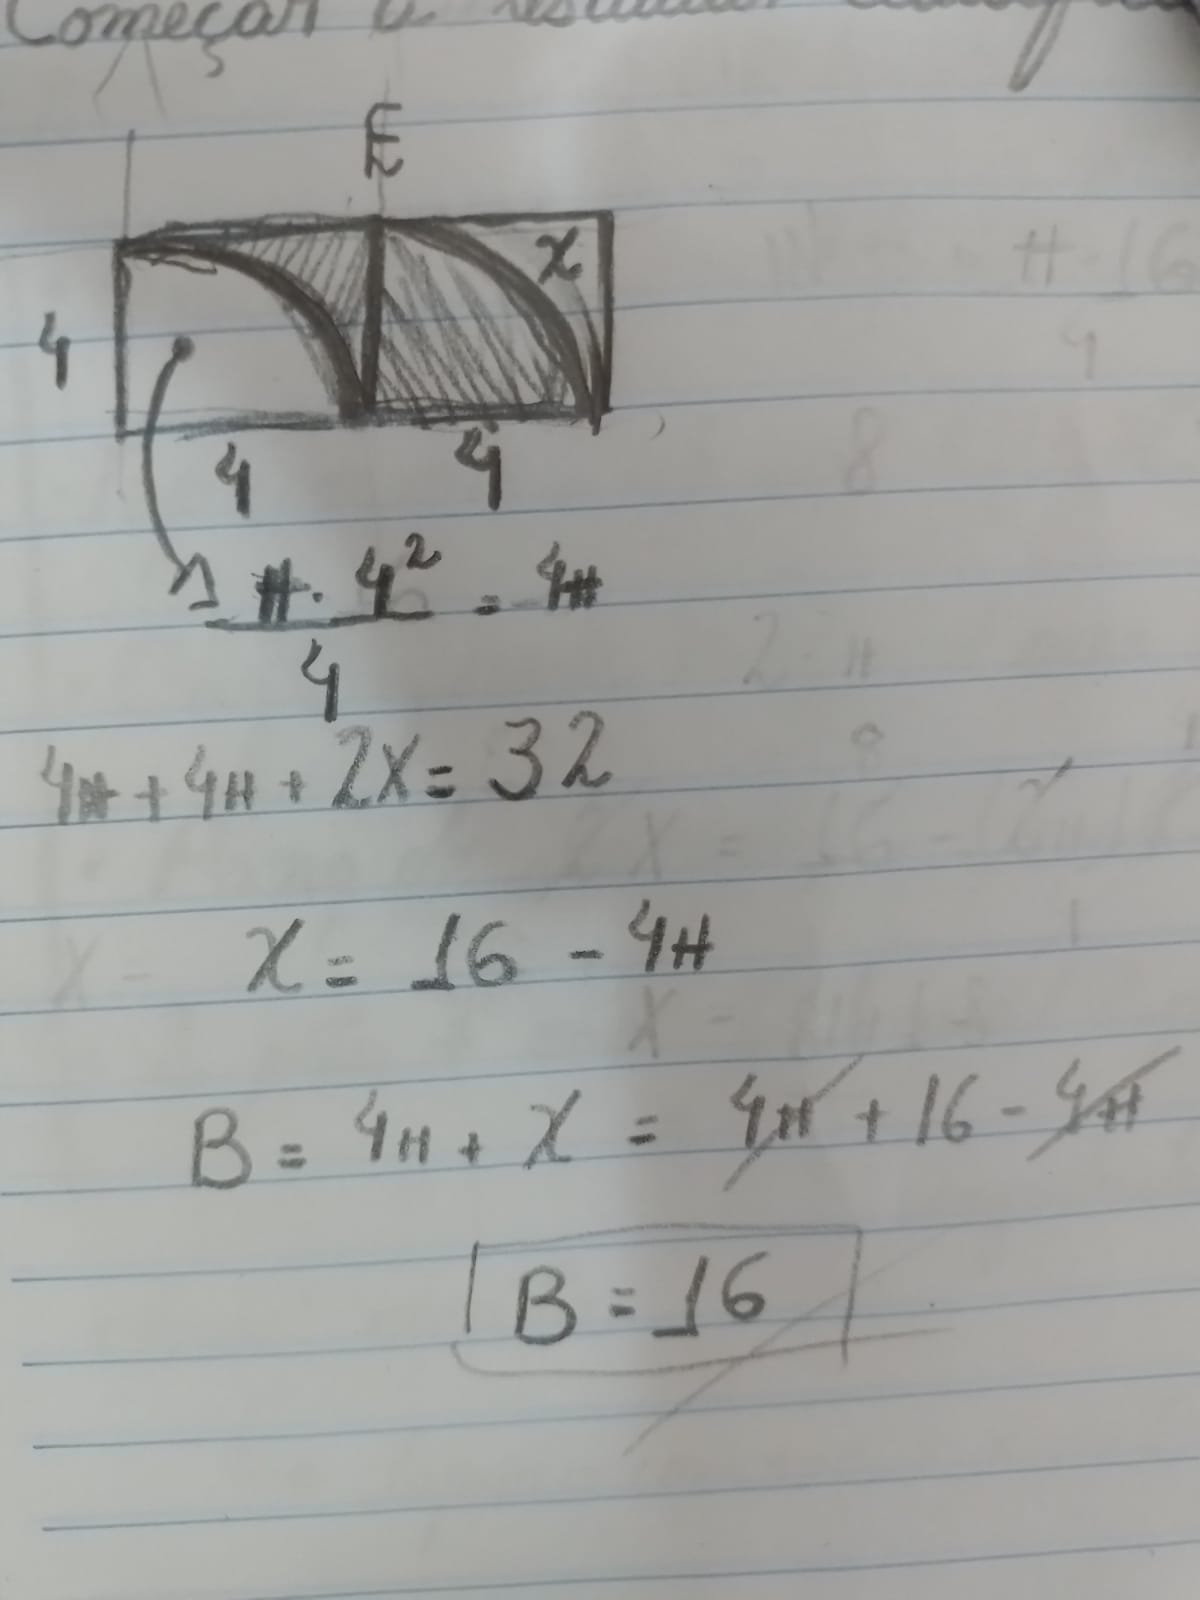 Começar a
E
x
4
4 4
π · 4² = 4π
4
4π + 4π + 2x = 32
x = 16 - 4π
B = 4π + x = 4π + 16 - 4π
B = 16